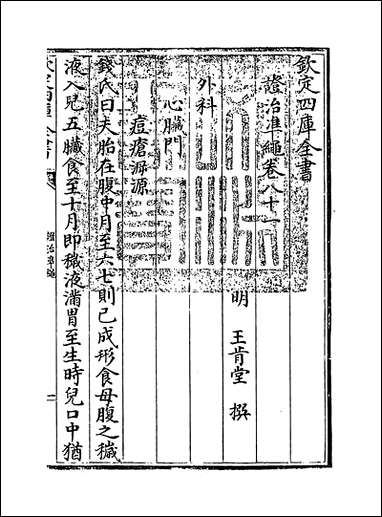 欽定四庫全書
證治準繩卷八十一
明 王肯堂 撰
外科
心臓門
痘瘡淵源
錢氏曰夫胎在腹中月至六七則已成形食母腹之穢
液入兒五臓食至十月即穢液滿胃至生時兒口中猶